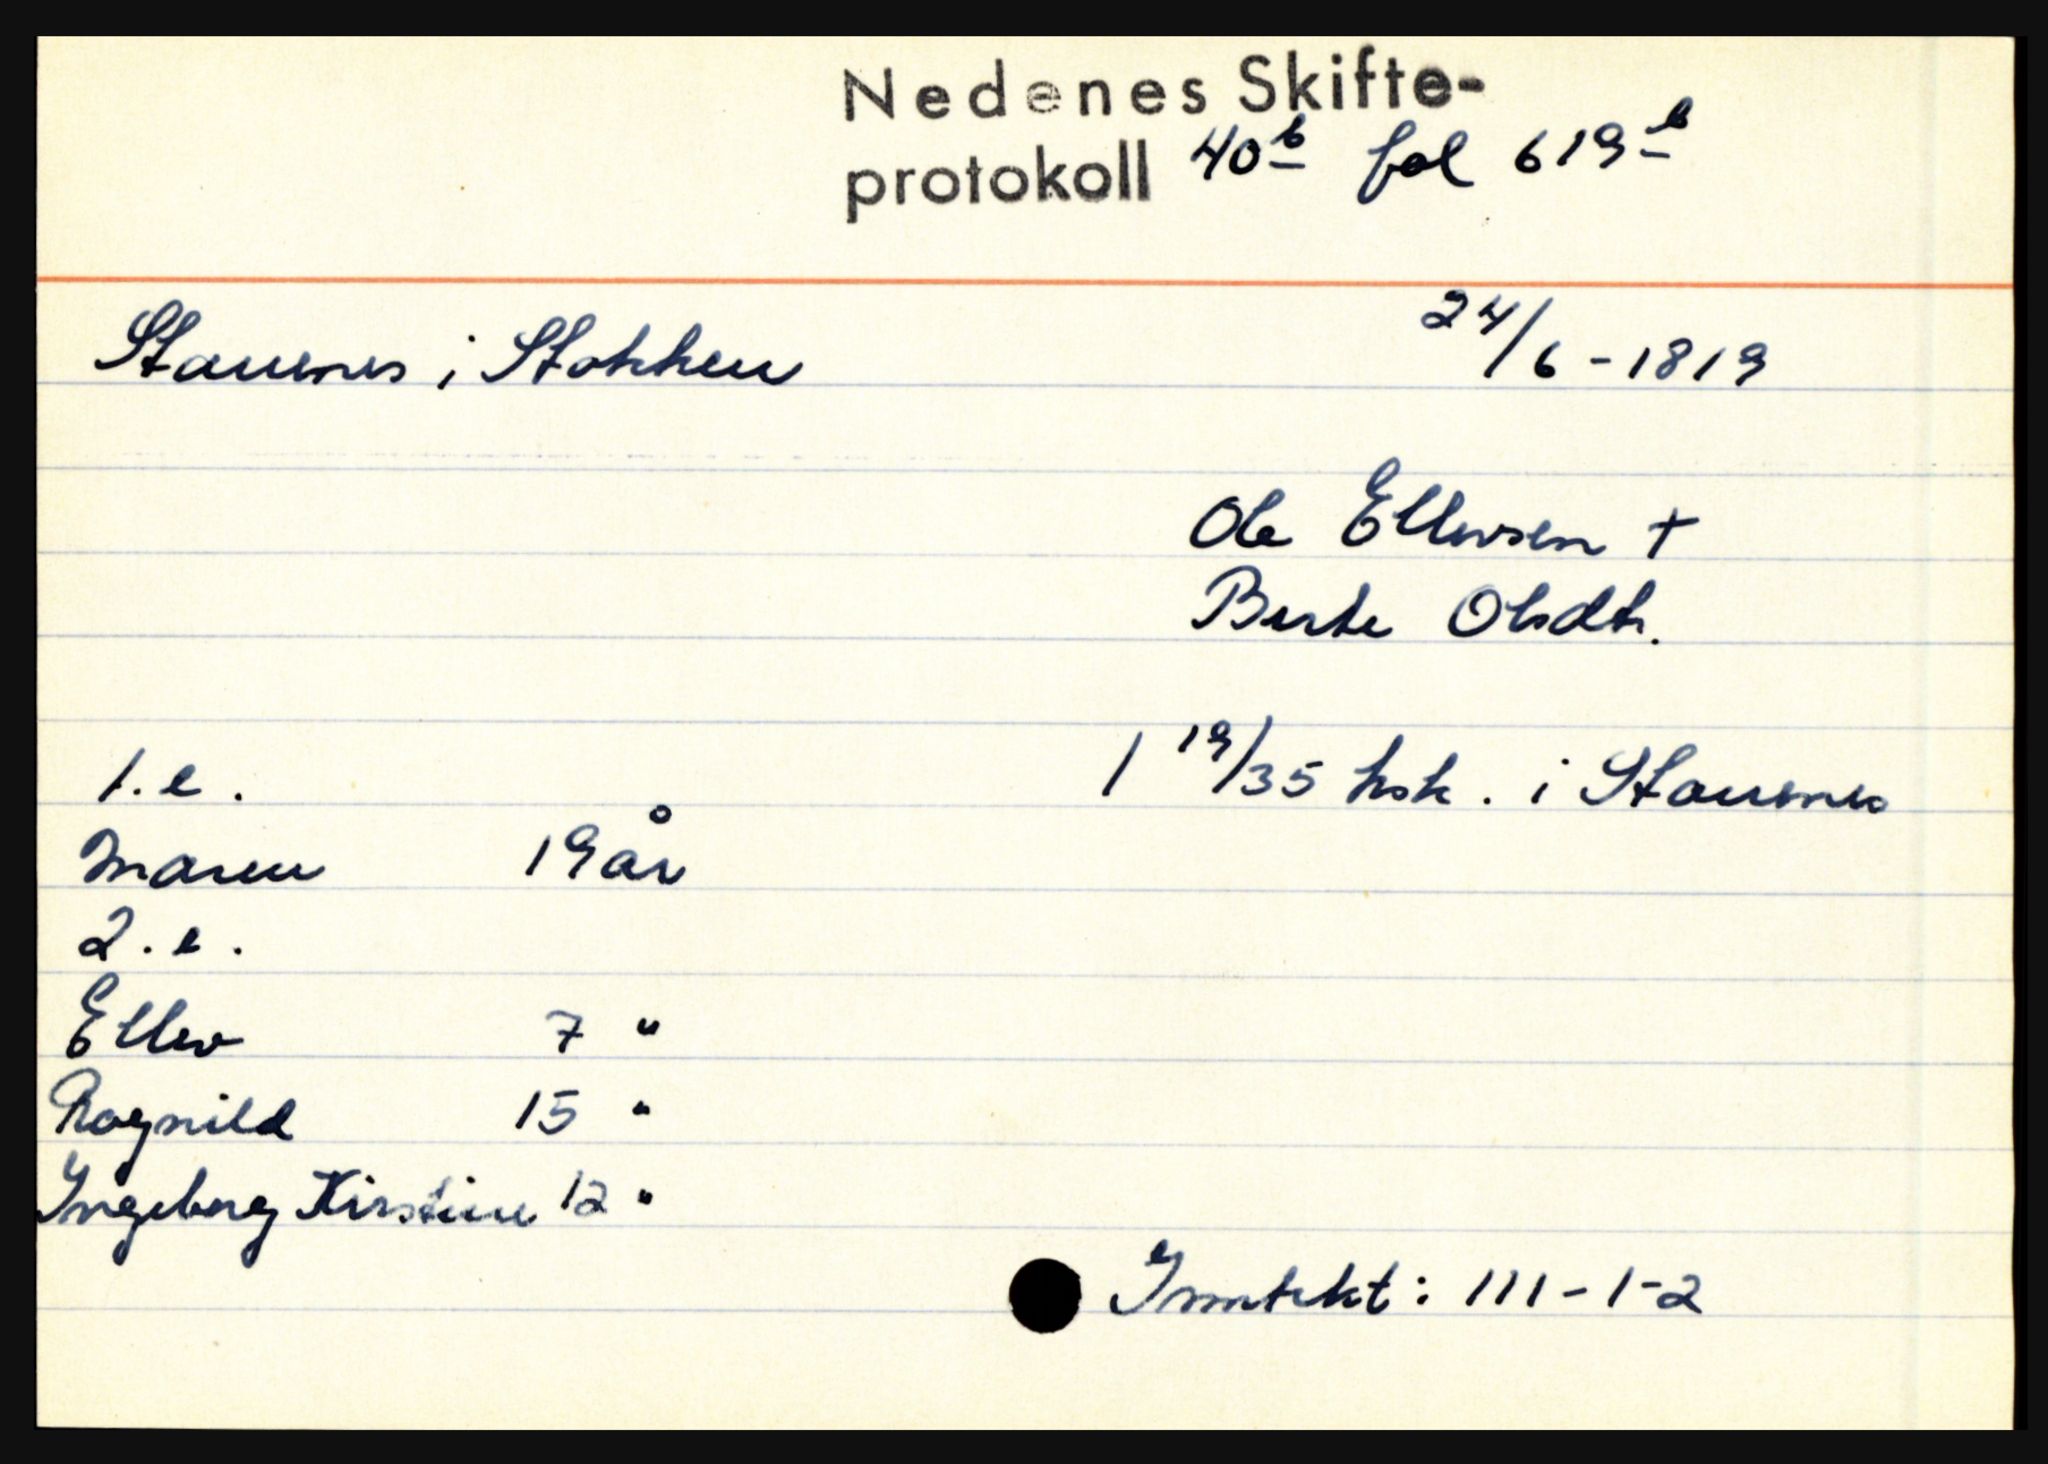 Nedenes Skifte-
protokoll 40b fol 619b
Stauenes i Stokken 24/6-1819
Ole Ellevsen +
Berte Olsdtr.
1.e. 1 19/35 hsk. i Stauenes
Maren 19 år
2.e.
Ellev 7 "
Ragnild 15 "
Ingeborg Kirstine 12 "
Inntekt: 111-1-2